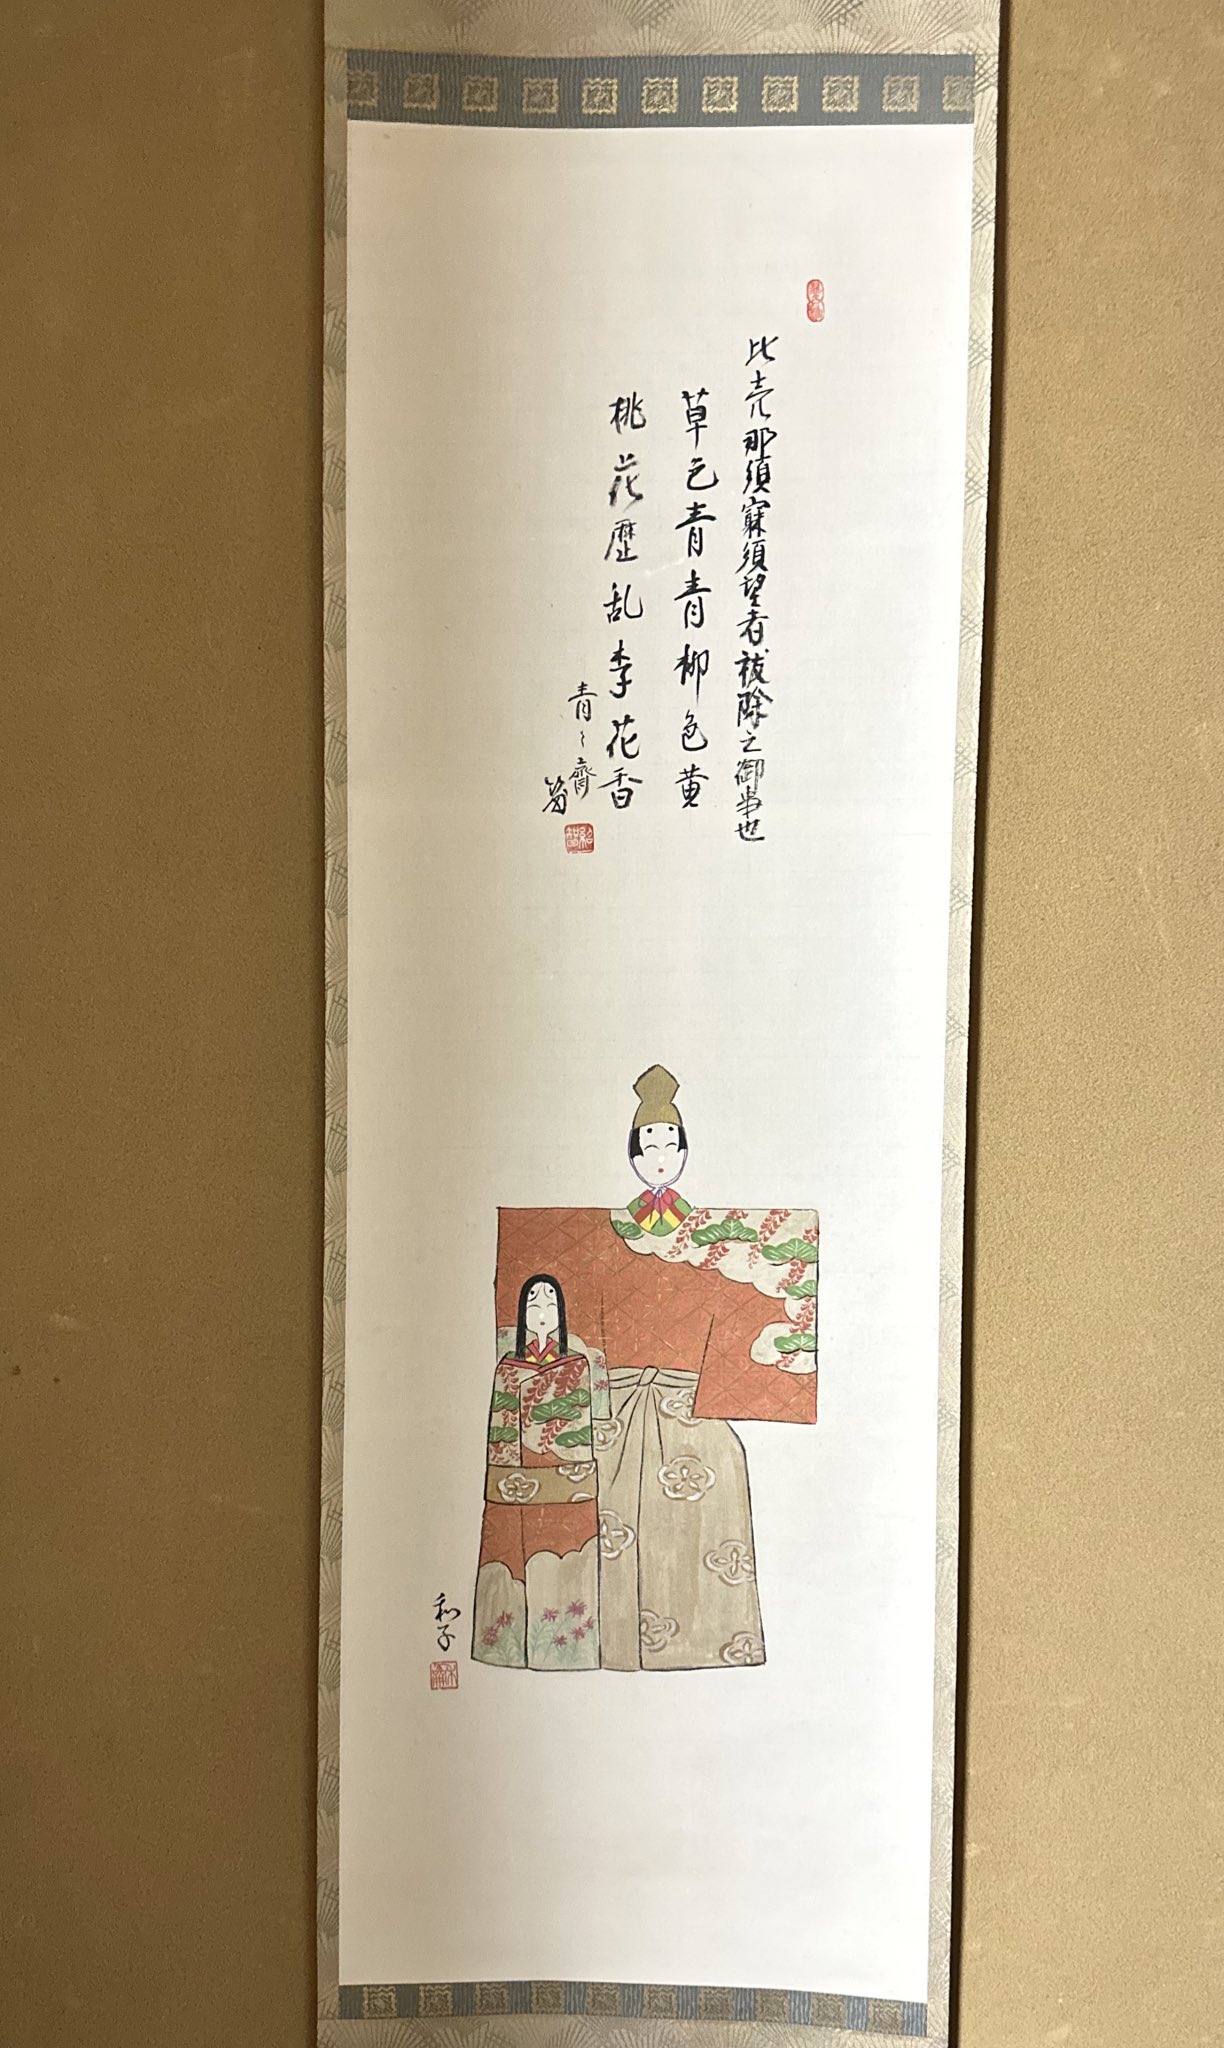 比売那須寐須望者祓除之御事也
草色青青柳色黄
桃花歴乱李花香
青々斎
和子